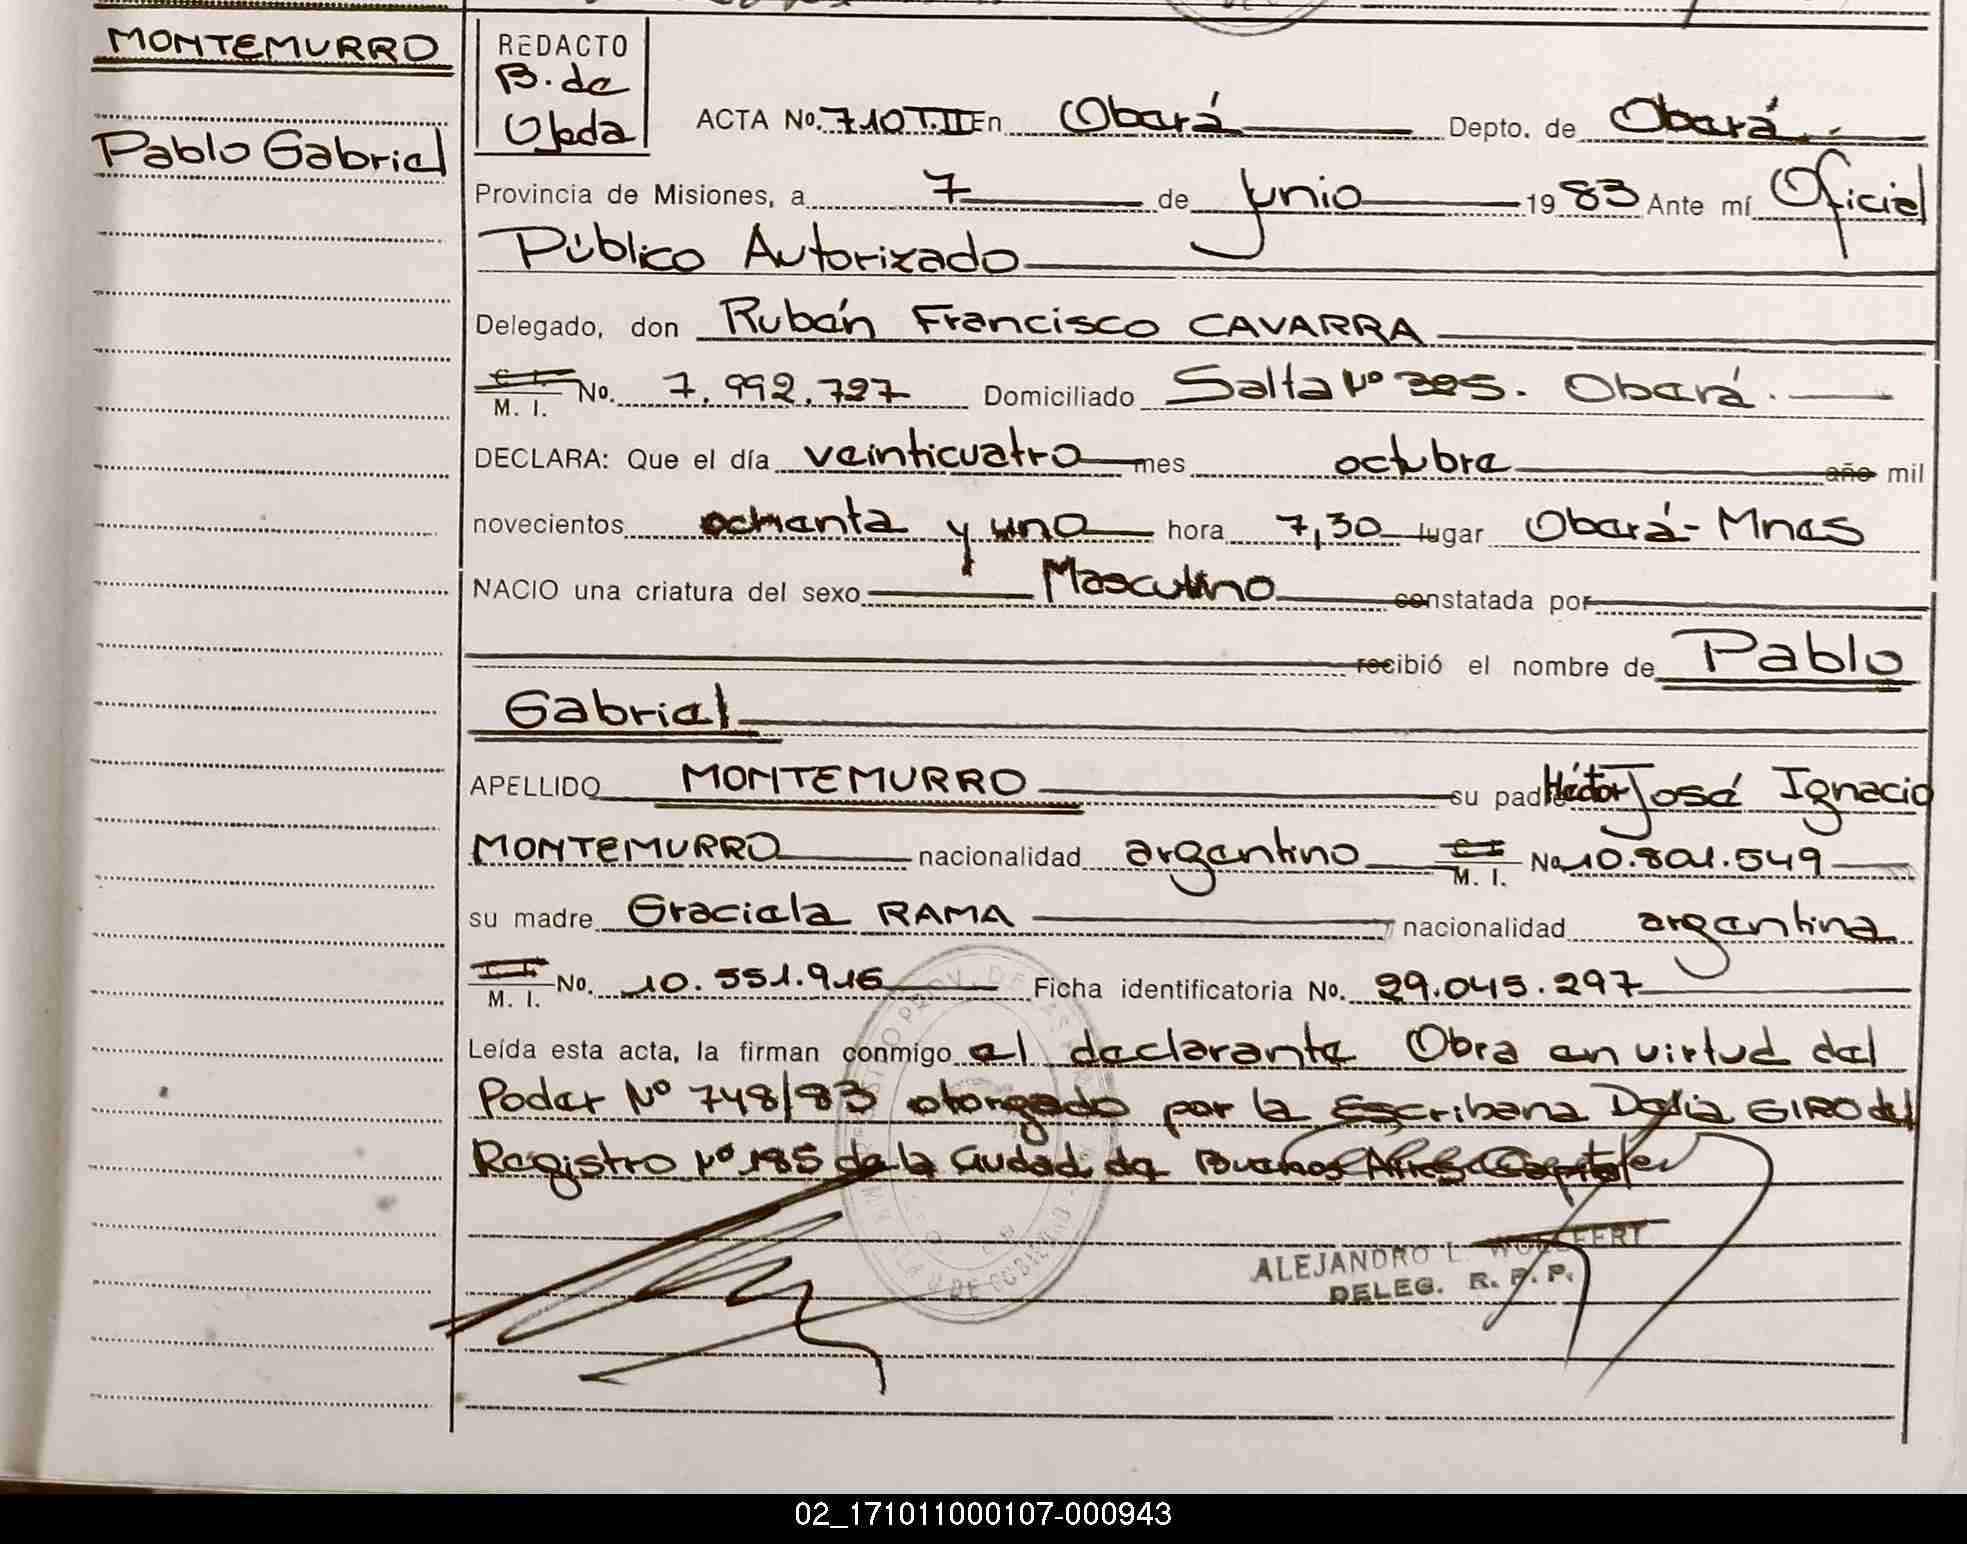 MONTEMURRO
Pablo Gabriel
REDACTO
B. de
Ojeda
ACTA No. 710 T.II En Oberá Depto. de Oberá
Provincia de Misiones, a 7 de Junio 1983 Ante mí Oficial
Público Autorizado
Delegado, don Rubén Francisco CAVARRA
C. I. M. I. No. 7.992.727 Domiciliado Salta Nº 325. Oberá.
DECLARA: Que el día veinticuatro mes octubre año mil
novecientos ochenta y uno hora 7,30 lugar Oberá - Mnes
NACIO una criatura del sexo Masculino constatada por
recibió el nombre de Pablo
Gabriel
APELLIDO MONTEMURRO su padre Héctor José Ignacio
MONTEMURRO nacionalidad argentino C. I. M. I. No. 10.801.549
su madre Graciela RAMA nacionalidad argentina
M. I. No. 10.551.916 Ficha identificatoria No. 29.045.297
Leída esta acta, la firman conmigo el declarante Obra en virtud del
Poder Nº 748/83 otorgado por la Escribana Delia GIRO del
Registro Nº 185 de la Ciudad de Buenos Aires Capital
ALEJANDRO L.
DELEG. R. P. P.
02_171011000107-000943